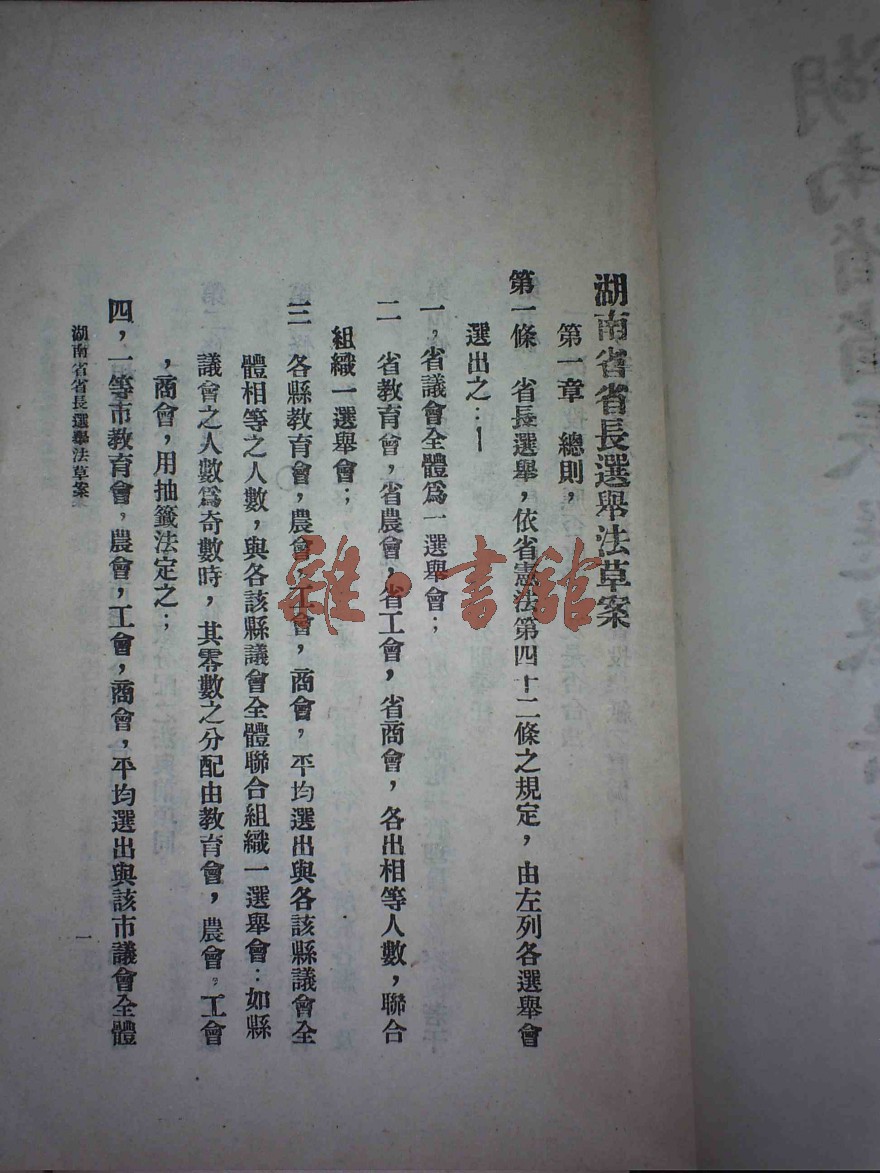 湖南省省長選舉法草案
第一章　總則，
第一條　省長選舉，依省憲法第四十二條之規定，由左列各選舉會
選出之：—
一，省議會全體爲一選舉會；
二　省教育會，省農會，省工會，省商會，各出相等人數，聯合
組織一選舉會；
三　各縣教育會，農會，工會，商會，平均選出與各該縣議會全
體相等之人數，與各該縣議會全體聯合組織一選舉會：如縣
議會之人數爲奇數時，其零數之分配由教育會，農會。工會
，商會，用抽籤法定之；
四，一等市教育會，農會，工會，商會，平均選出與該市議會全體
湖南省省長選舉法草案
一
雜·書館